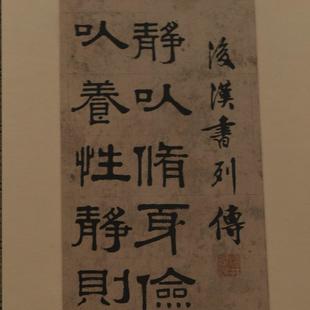 後漢書列傳
靜以脩身儉
以養性靜則